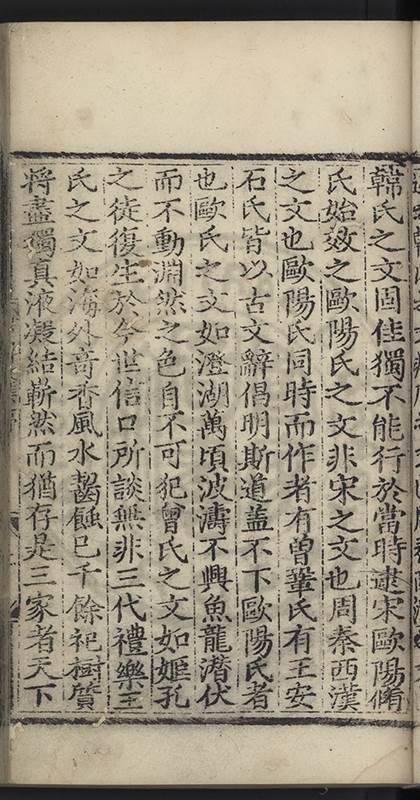 韓氏之文固佳獨不能行於當時逮宋歐陽脩
氏始效之歐陽氏之文非宋之文也周秦西漢
之文也歐陽氏同時而作者有曾鞏氏有王安
石氏皆以古文辭倡明斯道蓋不下歐陽氏者
也歐氏之文如澄湖萬頃波濤不興魚龍潛伏
而不動淵然之色自不可犯曾氏之文如姬孔
之徒復生於今世信口所談無非三代禮樂王
氏之文如海外奇香風水齧蝕已千餘祀樹質
將盡獨真液凝結嶄然而猶存是三家者天下